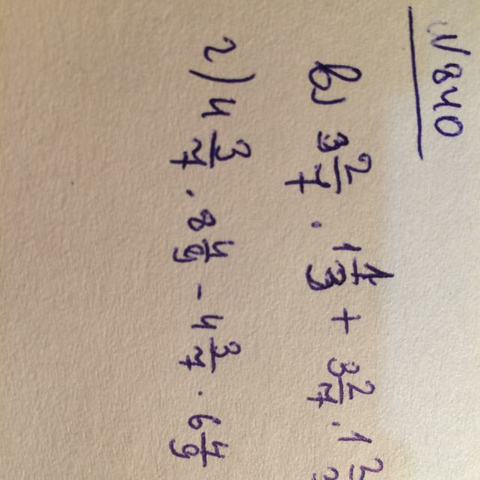 N 840
в) 3 2/7 · 1 1/3 + 3 2/7 · 1 2/3
г) 4 3/7 · 8 4/9 - 4 3/7 · 6 4/9